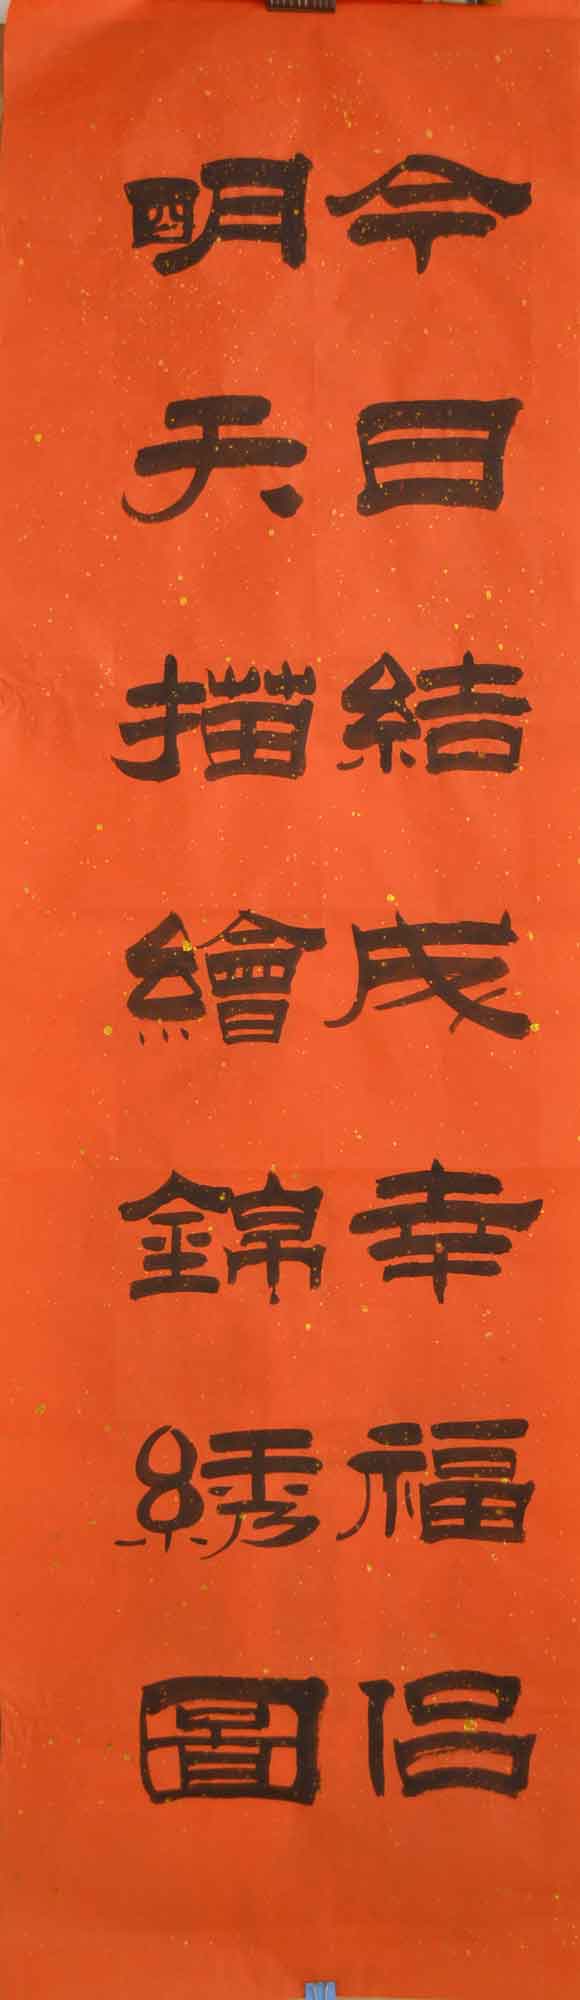 今日結成幸福侣
明天描繪錦綉圖